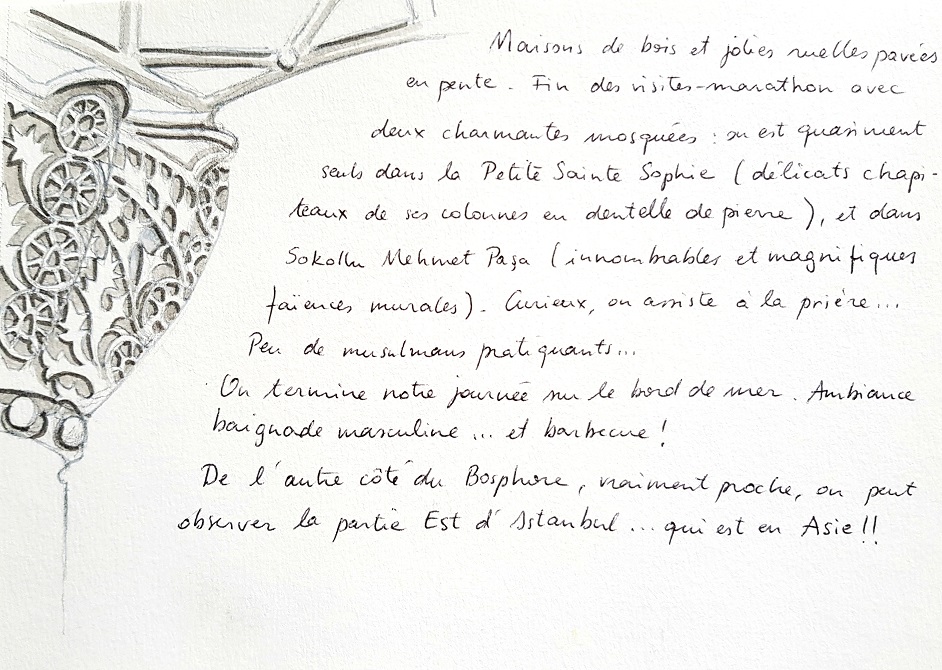 Maisons de bois et jolies ruelles pavées
en pente. Fin des visites-marathon avec
deux charmantes mosquées : on est quasiment
seuls dans la Petite Sainte Sophie (délicats chapi-
teaux de ses colonnes en dentelle de pierre), et dans
Sokollu Mehmet Paşa (innombrables et magnifiques
faïences murales). Curieux, on assiste à la prière...
Peu de musulmans pratiquants...
On termine notre journée sur le bord de mer. Ambiance
baignade masculine ... et barbecue !
De l'autre côté du Bosphore, vraiment proche, on peut
observer la partie Est d'Istanbul ... qui est en Asie !!